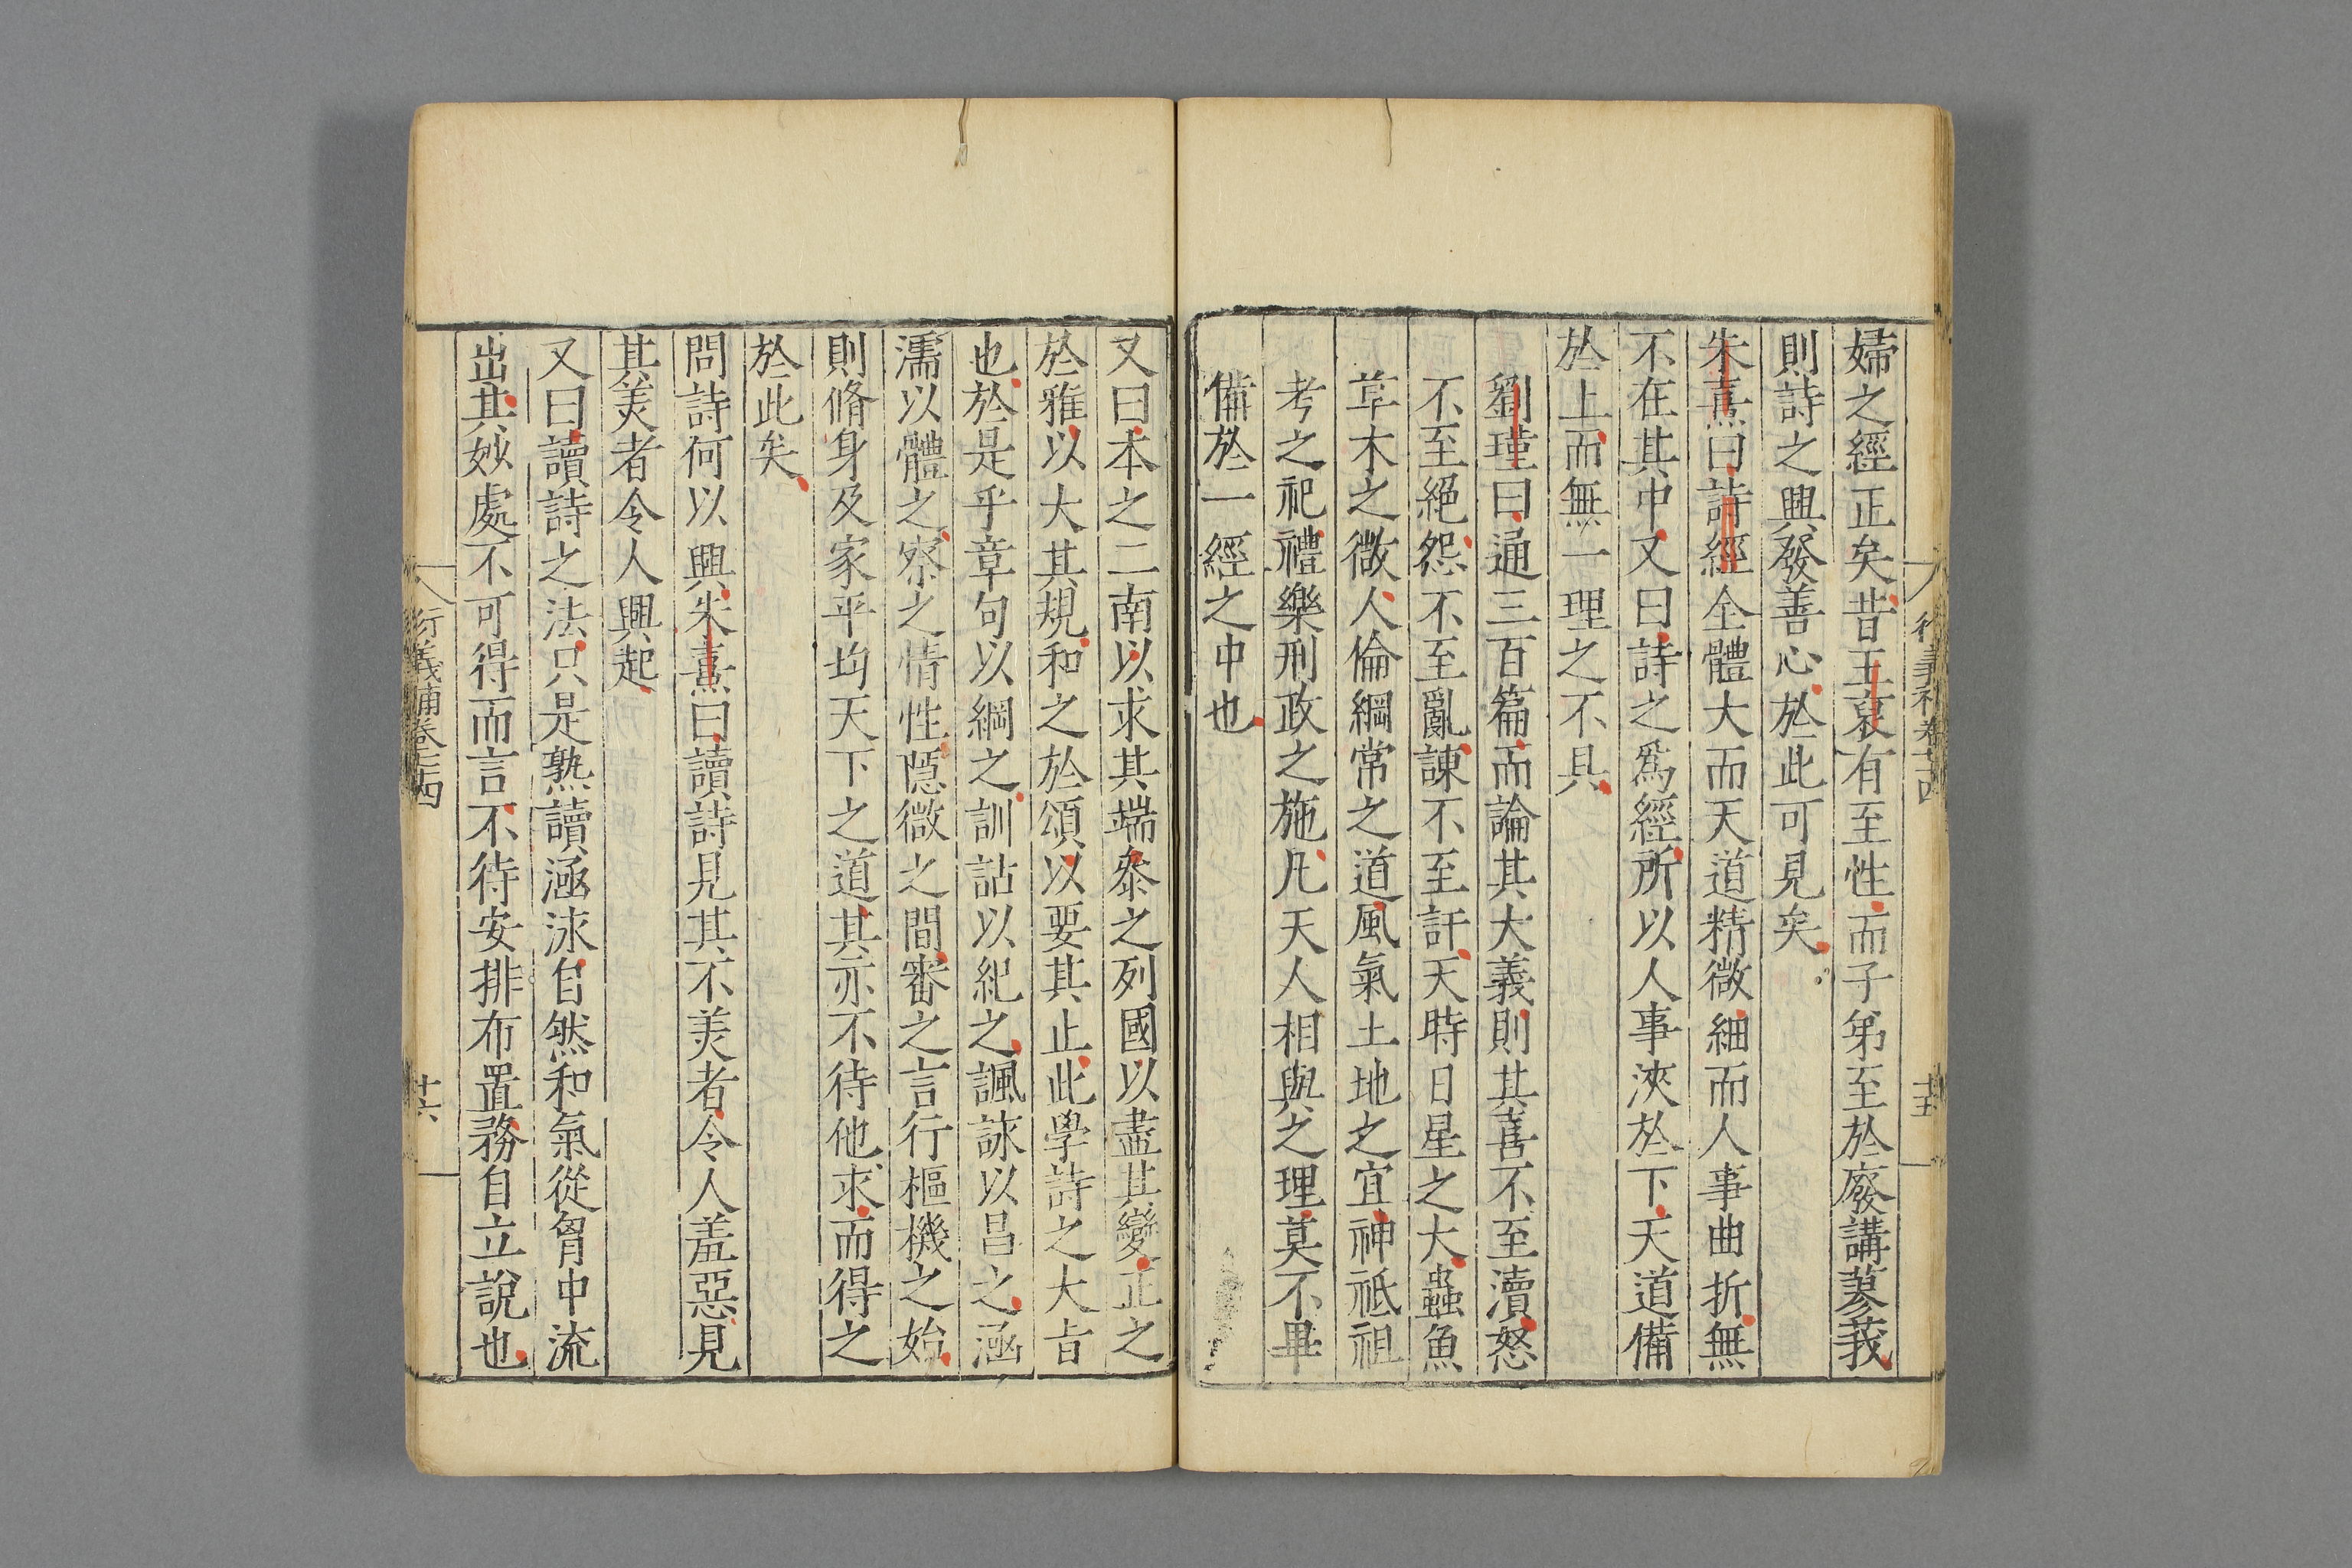 婦之經正矣昔王裒有至性而子弟至於廢講蓼莪
則詩之興發善心於此可見矣
朱熹曰詩經全體大而天道精微細而人事曲折無
不在其中又曰詩之爲經所以人事浹於下天道備
於上而無一理之不具
劉瑾曰通三百篇而論其大義則其喜不至瀆怒
不至絕怨不至亂諫不至訐天時日星之大蟲魚
草木之微人倫綱常之道風氣土地之宜神祗祖
考之祀禮樂刑政之施凡天人相與之理莫不畢
備於一經之中也
又曰本之二南以求其端叅之列國以盡其變正之
於雅以大其規和之於頌以要其止此學詩之大旨
也於是乎章句以綱之訓詁以紀之諷詠以昌之涵
濡以體之察之情性隱微之間審之言行樞機之始
則脩身及家平均天下之道其亦不待他求而得之
於此矣
問詩何以興朱熹曰讀詩見其不美者令人羞惡見
其美者令人興起
又曰讀詩之法只是熟讀涵泳自然和氣從胷中流
出其妙處不可得而言不待安排布置務自立說也
衍義補卷七十四
廿六